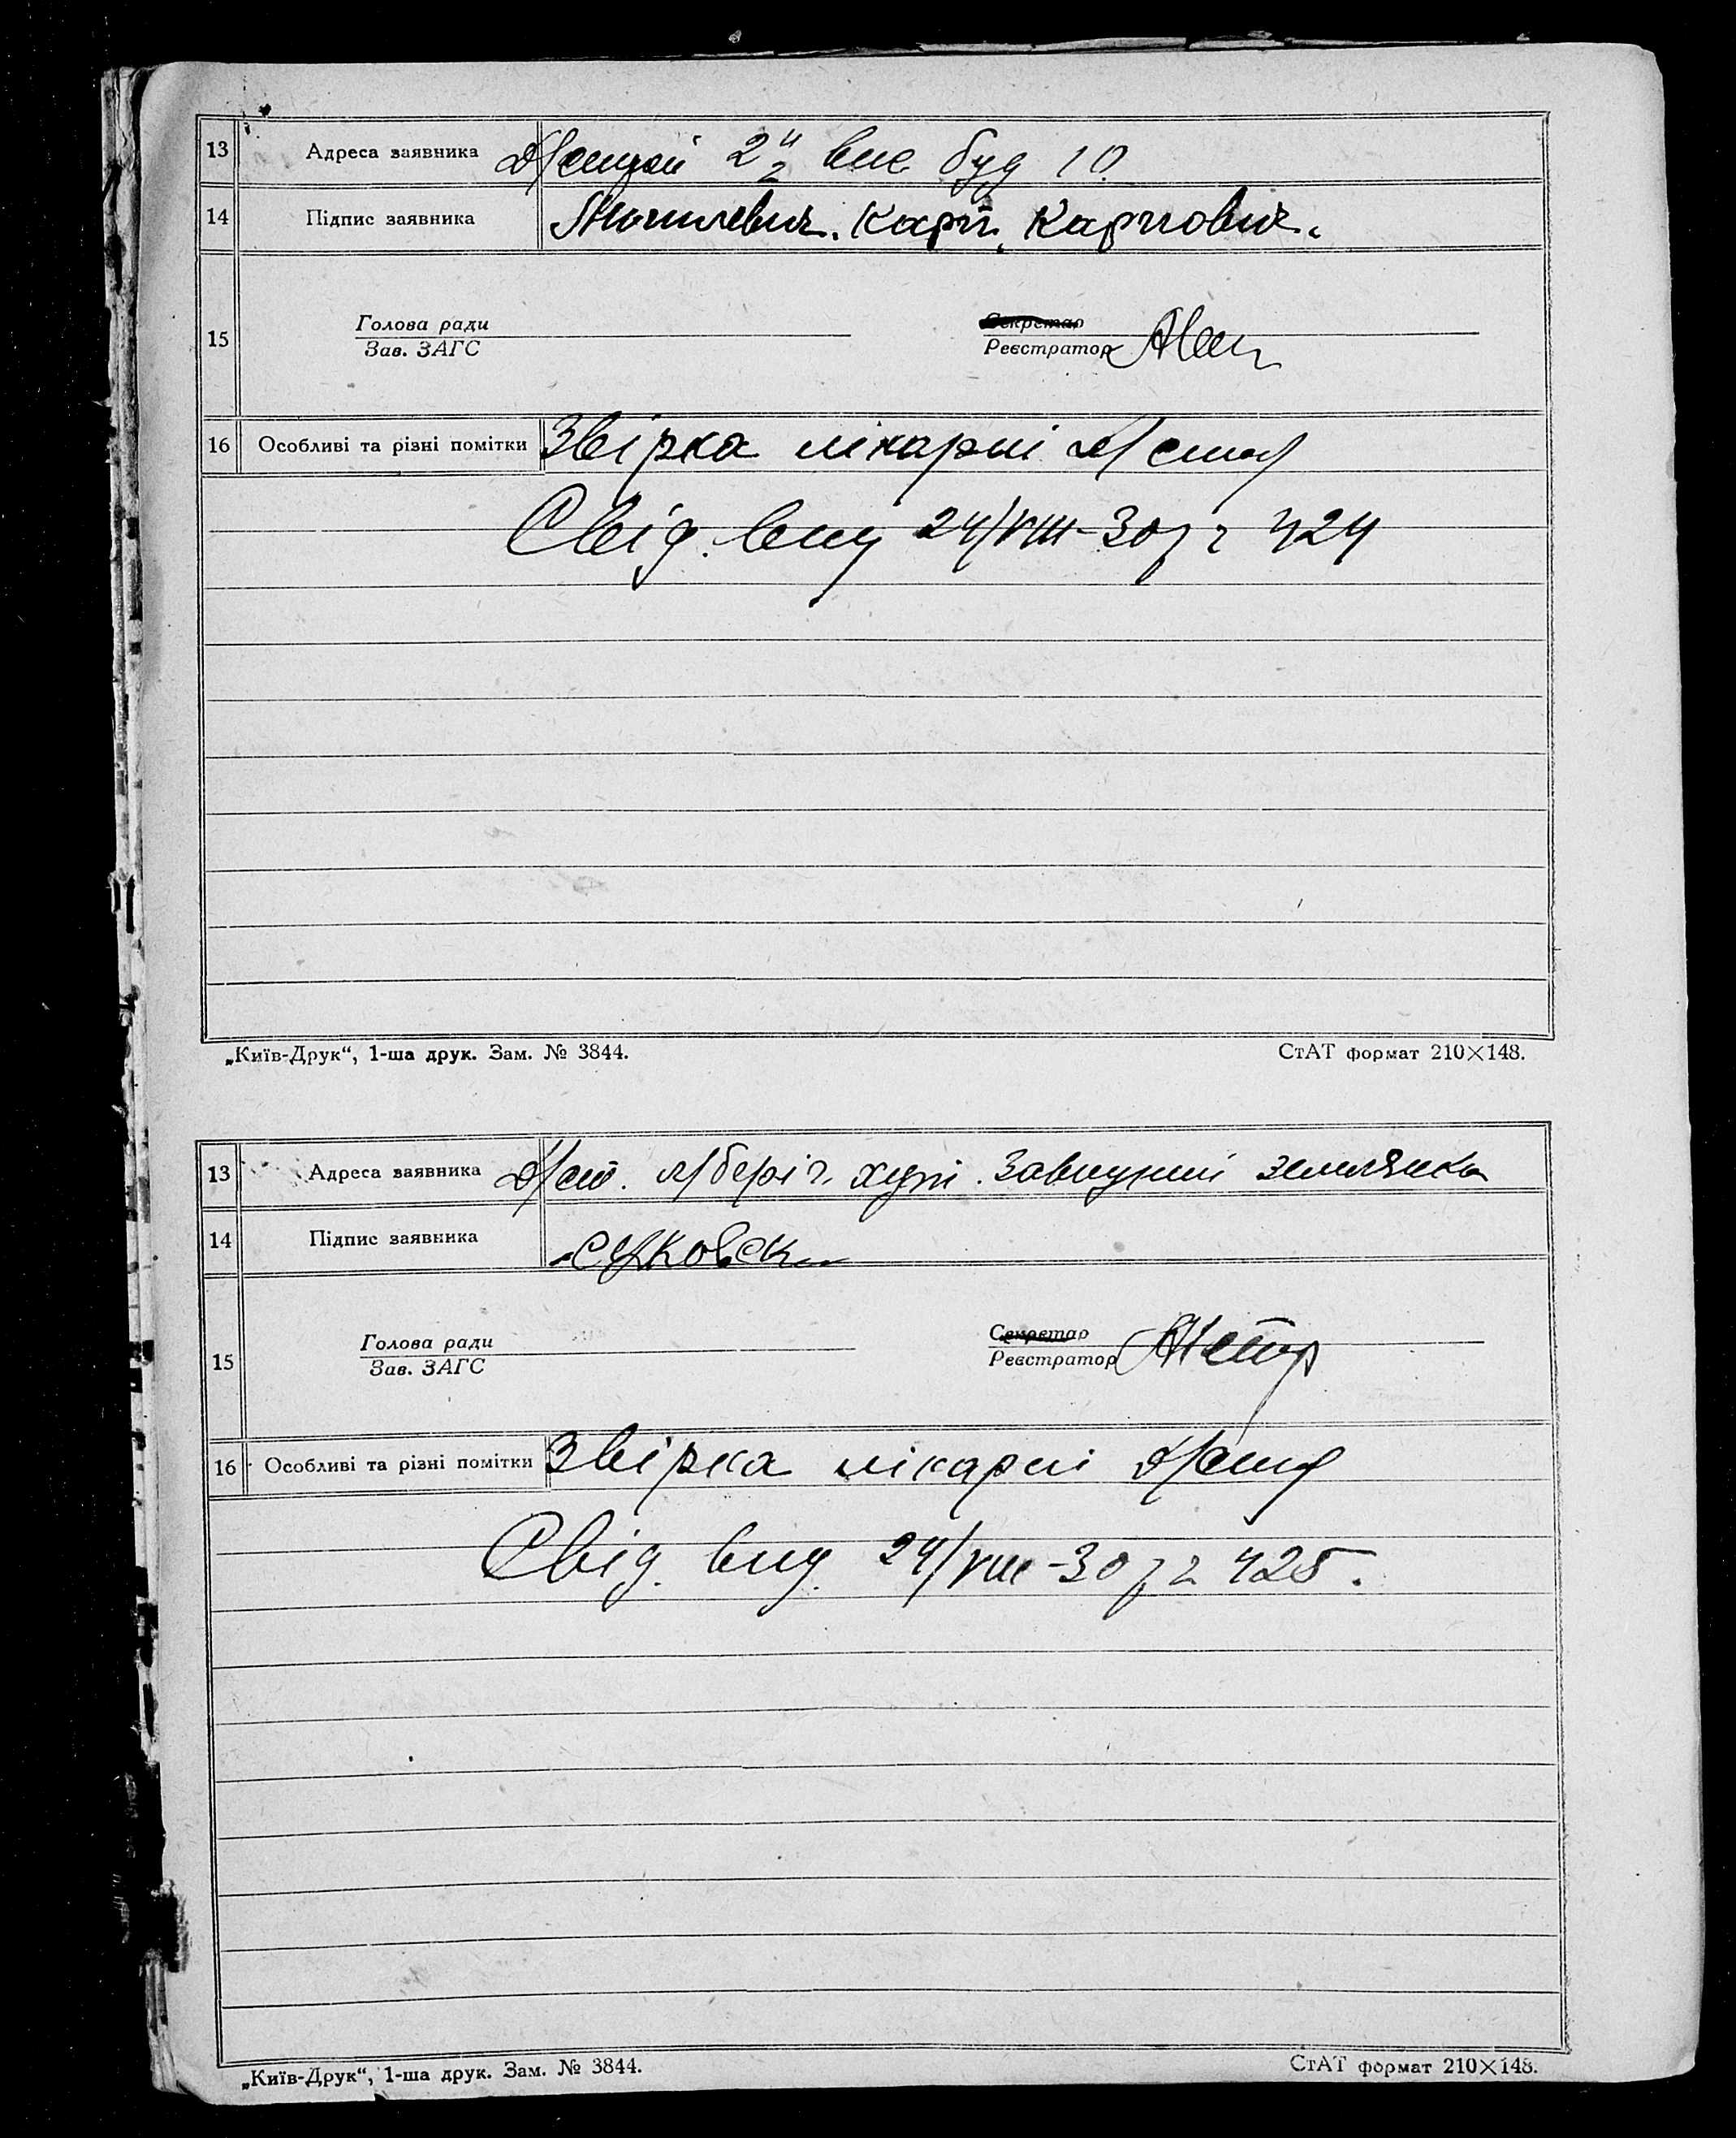 13 Адреса заявника 2 вис буд 10
14 Підпис заявника Могилевич. Карп. Карпович.
15 Голова ради Секретар
Зав. ЗАГС Реєстратор
16 Особливі та різні помітки Звірка лікарні
Свід. вид 24/VIII-30 р г 424
„Київ-Друк“, 1-ша друк. Зам. № 3844. СтАТ формат 210×148.
13 Адреса заявника землянка
14 Підпис заявника
15 Голова ради Секретар
Зав. ЗАГС Реєстратор
16 Особливі та різні помітки Звірка лікарні
Свід. вид. 24/VIII-30 р г 425.
„Київ-Друк“, 1-ша друк. Зам. № 3844. СтАТ формат 210×148.